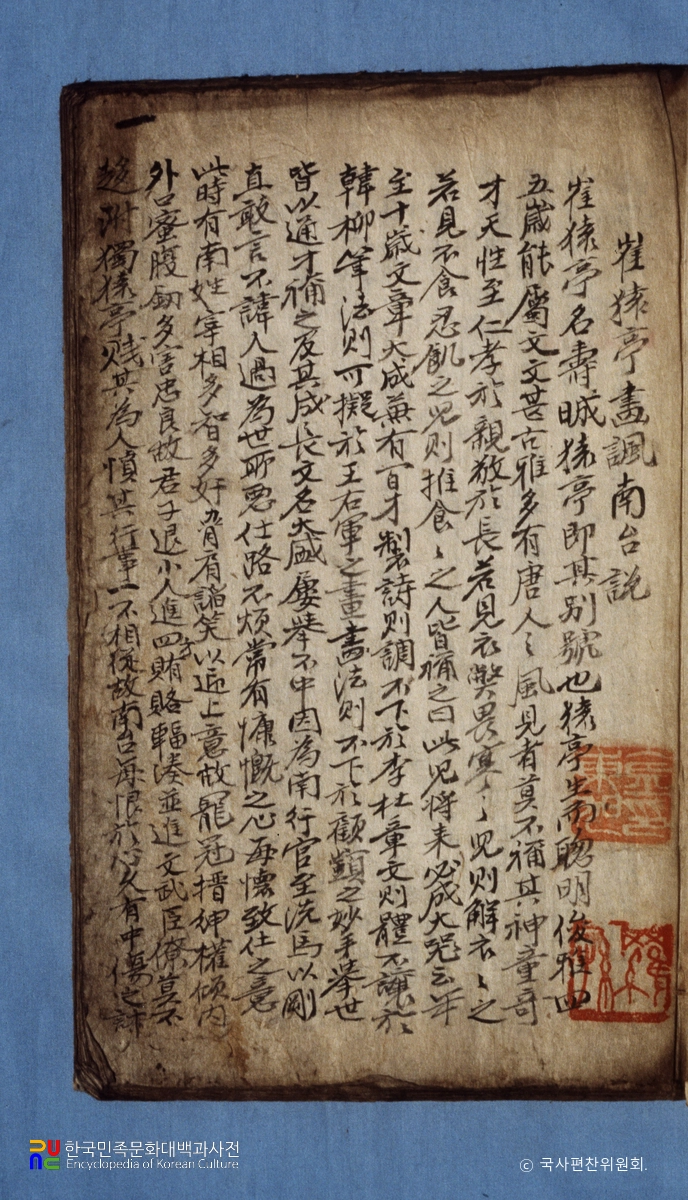 崔猿亭畫諷南台說
崔猿亭名壽峸猿亭即其別號也猿亭生而聰明俊雅四
五歲能屬文文甚古雅多有唐人之風見者莫不稱其神童哥
才天性至仁孝於親敬於長若見衣弊畏寒之児則解衣衣之
若見不食忍飢之児則推食食之人皆稱之曰此児將来必成大器云年
至十歲文章大成兼有百才製詩則調不下於李杜章文則體不讓於
韓柳筆法則可擬於王右軍之畫畵法則不下於顧
之妙手舉世
皆以通才稱之及其成長文名大盛屢舉不中因為南行官至洗馬以剛
直敢言不諱人過為世所惡仕路不煩常有慷慨之心每懷致仕之意
此時有南姓宰相多智多奸脅肩諂笑以迎上意故寵冠搢紳權傾内
外口蜜腹釰多害忠良故君子退小人進四方賄賂輻湊並進文武臣僚莫不
趍附獨猿亭賤其為人憤其行事一不相從故南台每恨於心久有中傷之計
한국민족문화대백과사전
Encyclopedia of Korean Culture
© 국사편찬위원회.